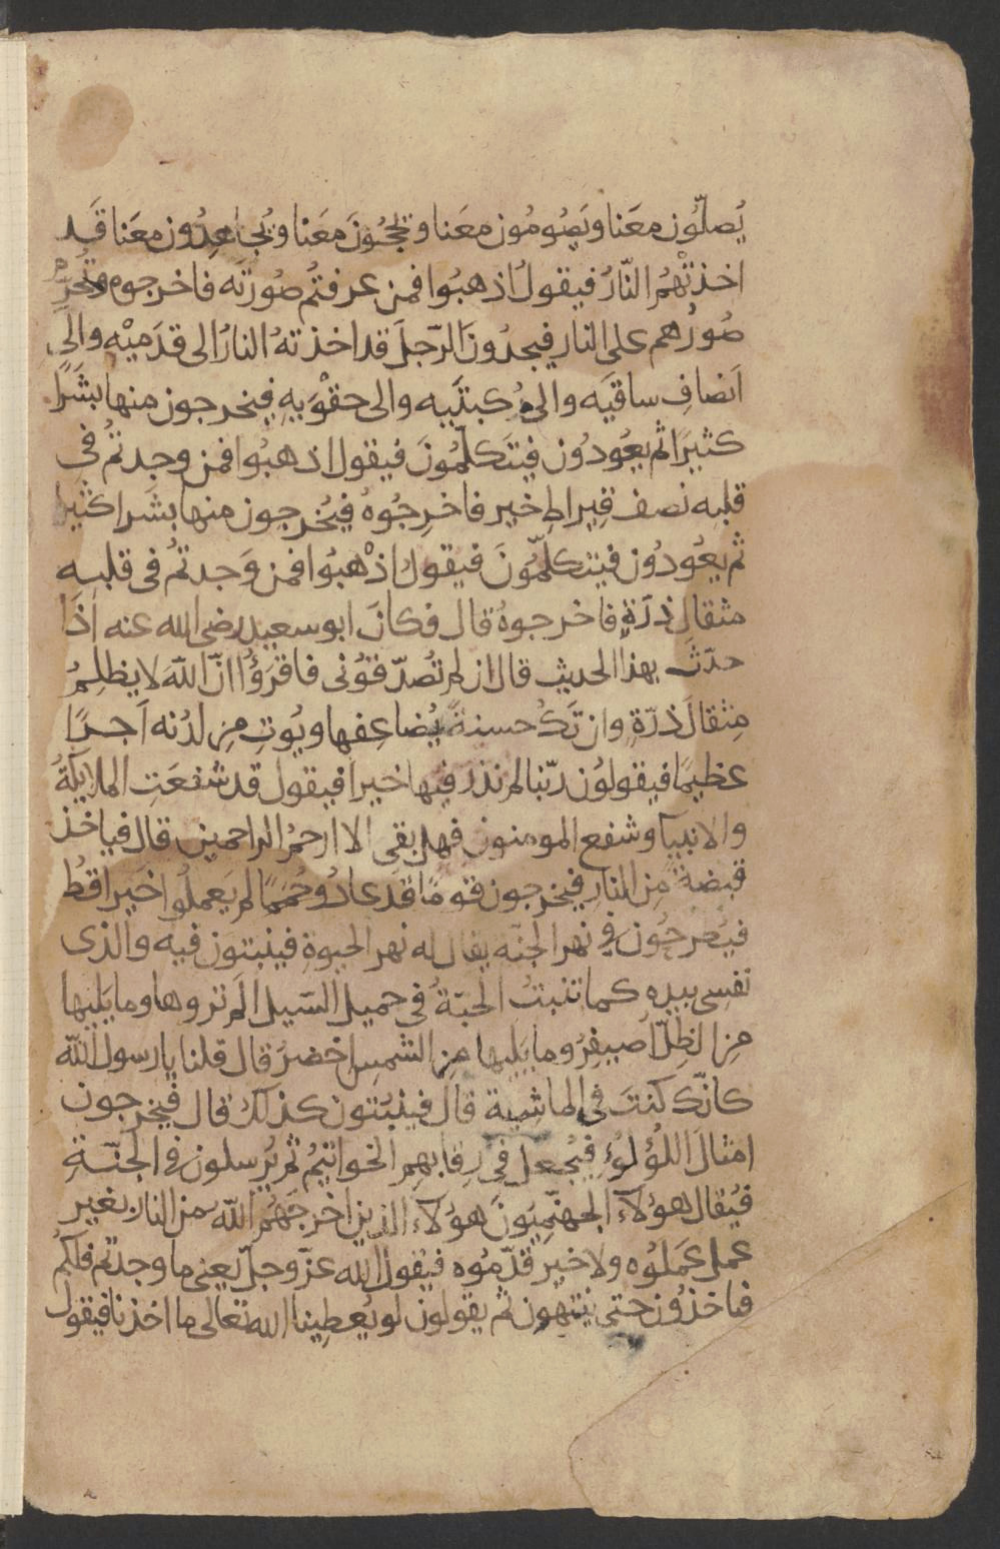 يُصلّون معَنا ويَصُومُون معَنا ويحجّونَ معَنا ويُجاهِدُون معَنا قَد
اخذتْهُم النّارُ فيقولُ اذهبُوا فمن عرفتُم صُورتَه فاخرجوه وتُحرَّم
صُورُهم على النار فيجدُونَ الرّجلَ قد اخذتهُ النارُ الى قدَميْه والى
اَنصافِ ساقيَه والى رُكبتَيه والى حقْوَيهِ فيخرجون منها بشَرًا
كثيرًا ثم يعُودُون فيتَكلّمُونَ فيقول اذهبُوا فمن وجدتمُ فى
قلبه نصف قِيراطِ خير فاخرِجُوهُ فيُخرجون منها بشَرا كثيرا
ثم يعُودُون فيتكلمّونَ فيقولُ اذْهبُوا فمن وَجدتمُ فى قلبه
مثقال ذرَةٍ فاخرجوهُ قال فكانَ ابو سعيد رضى الله عنه اذَا
حدّثَ بهذا الحديث قال ان لم تُصدّقوُنى فاقرَؤُا انّ اللّهَ لا يظلِمُ
مِثقالَ ذرّةٍ وان تَكُ حسنةً يُضاعِفها ويُوتِ مِن لدُنه اَجرًا
عظيمًا فيقولوُن ربّنا لم نذر فيها خيرا فيقول قد شفعَتِ الملايكةُ
والانبيآ وشفع المومنون فهل بقى الا ارحمُ الراحمين قال فياخذ
قبضةً مِن النار فيخرجون قومًا قد عادُوا حُمَمًا لم يَعملُوا خَيرا قطُ
فيَطرحُون فى نهر الجنّه يقال له نهر الحيوة فينبتون فيه والذى
نفسى بيده كما تنبتُ الحبّةُ فى حميل السّيل الَم تروها وما يَليها
مِن الظلّ اُصيفِرُ وما يَليها مِن الشمسِ اخضرُ قال قلنا يا رسول اللّه
كانّك كنتَ فى الماشية قال فينبُتون كذلك قال فيخرجون
امثالَ اللُؤْلوُءِ فيُجعل فى رقابهم الخواتيمُ ثم يُرسلون فى الجنّةِ
فيُقال هوُلآء الجهنّمِيّونَ هوُلآء الذين اخرجَهُم اللّه من النار بغير
عملٍ عَملُوه ولا خير قدّمُوه فيقول اللّه عزّ وجلّ يعنى ما وجدتم فلكُم
فياخذُون حتى ينتهون ثم يقولون لو يُعطِينا الله تعالى ما اخذنا فيقول